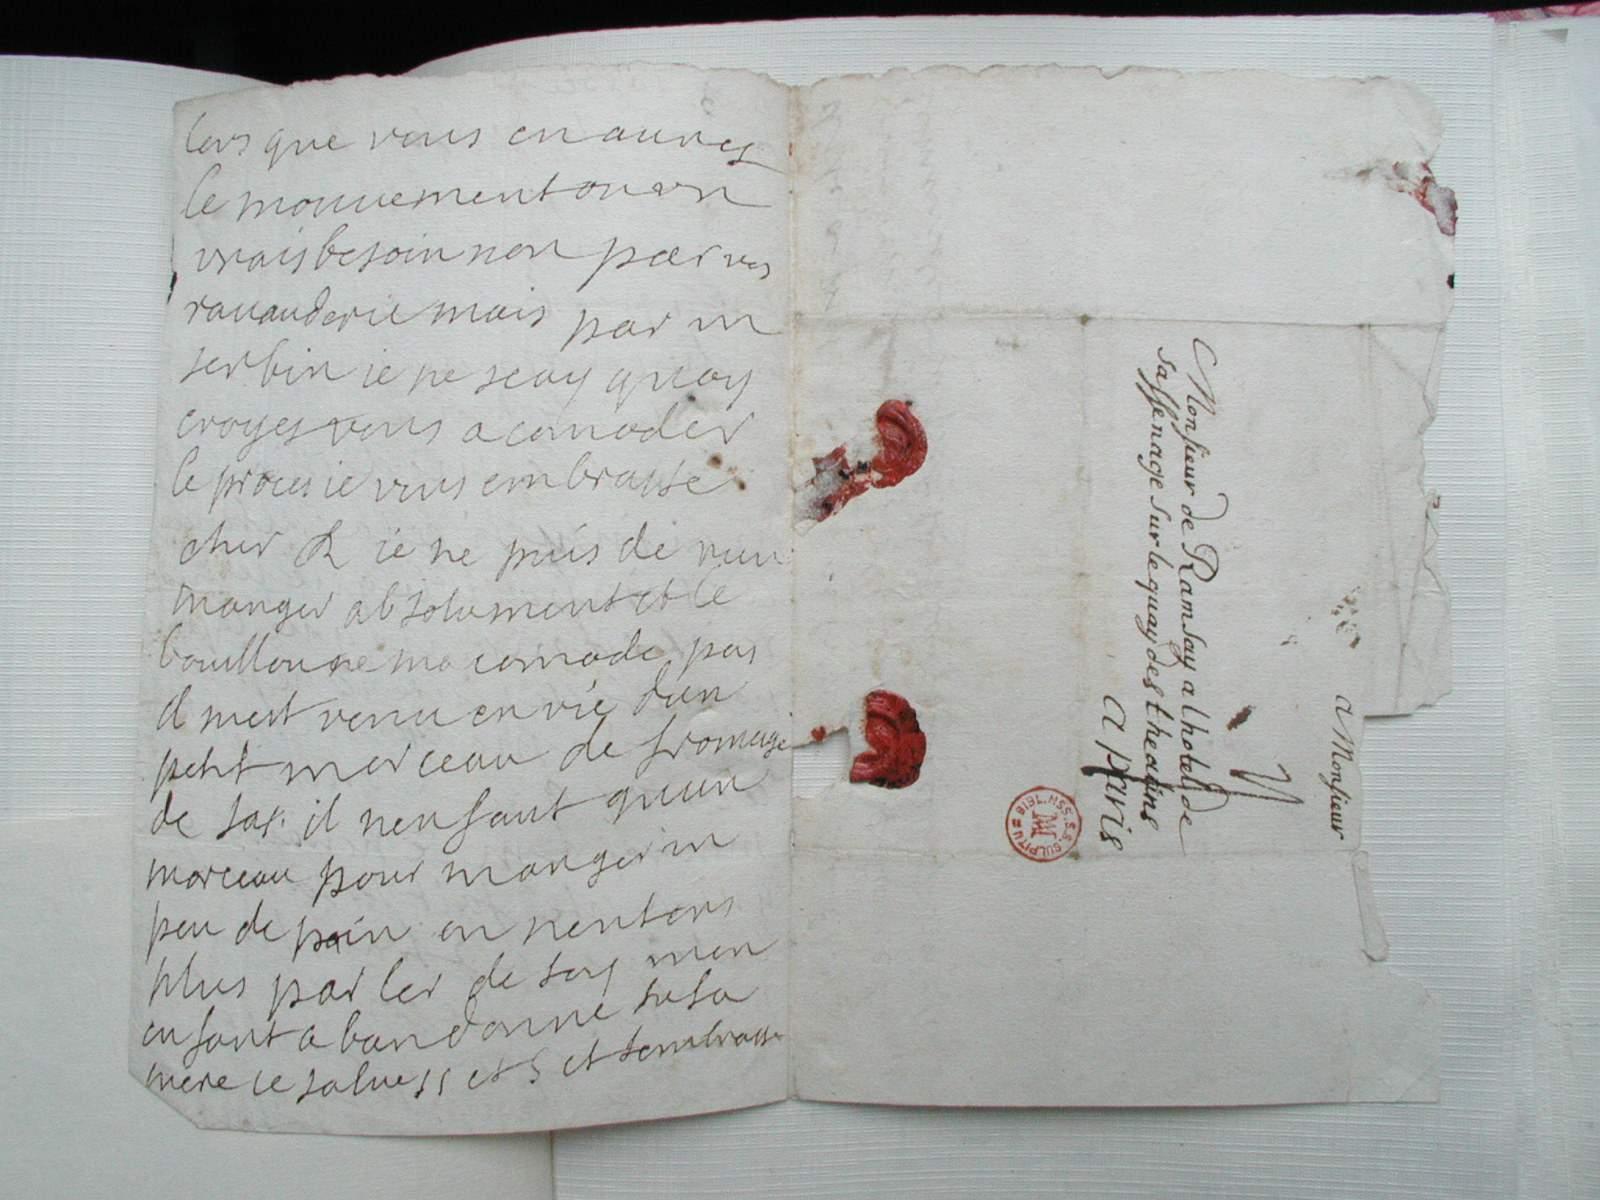 lors que vous en aures
le mouvement ou un
vrais besoin non par vos
ravauderie mais par un
ser bin ie ne scay quoy
croyes vous acomoder
le proces ie vous embrasse
cher R ie ne puis de rien
manger absolument et le
bouillon ne macomode pas
il mest venu envie dun
petit morceau de fromage
de sas. il nenfaut quun
morceau pour manger un
peu de pain on nentens
plus parler de soy mon
enfant abandonne sa
mere ie salue et et tembrasse
a Monsieur
Monsieur de Ramsay a lhotel de
Sassenage sur le quay des theatins
a paris
S.S. SULPITII MSS. 1618